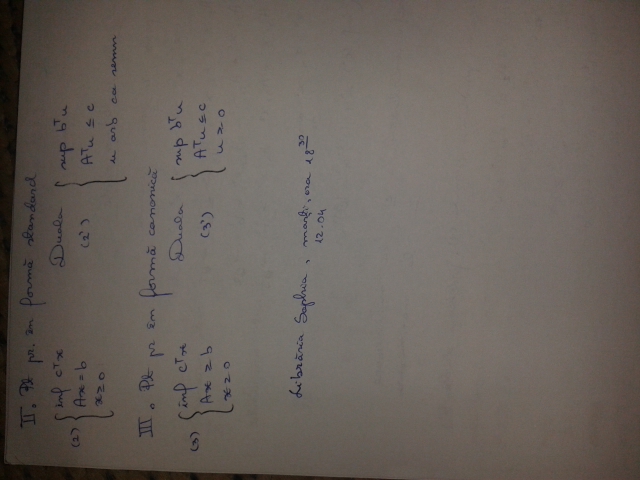 II. Pt pr. în formă standard
(2) { inf cᵀx Duala { sup bᵀu
Ax = b (2') Aᵀu ≤ c
x ≥ 0 u arb ca semn
III. Pt pr în formă canonică
(3) { inf cᵀx Duala { sup bᵀu
Ax ≥ b (3') Aᵀu ≤ c
x ≥ 0 u ≥ 0
Librăria Sophia, marți, ora 18³⁰
12.04